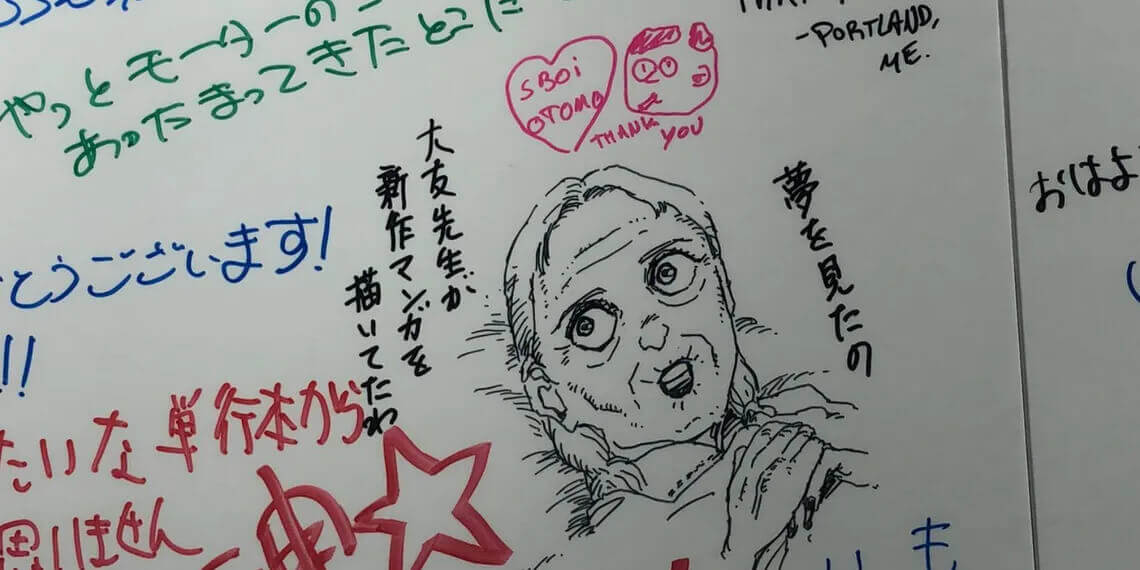 やっとモーターの
あったまってきたとこだ
-PORTLAND,
ME.
SBOi
OTOMO
THANK
YOU
夢を見たの
大友先生が
新作マンガを
描いてたわ
おはよ
とうございます!
!!
たいな単行本から
思いません
も